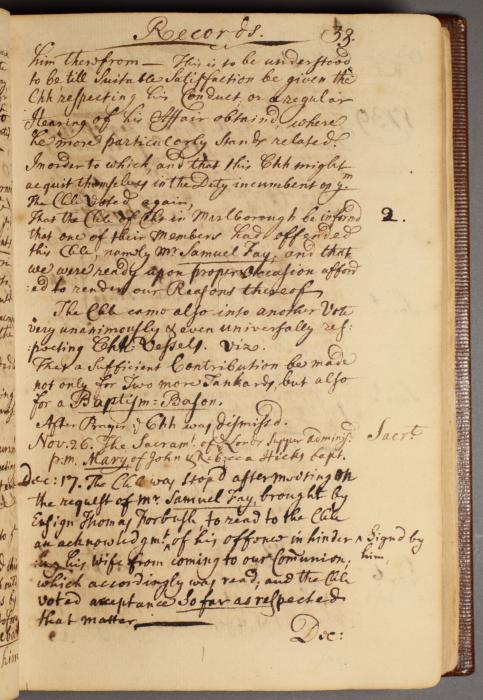 Records. 33.
him therefrom — This is to be understood
to be till Suitable Satisfaction be given the
Chh respecting his Conduct, or a regular
Hearing of his Affair obtaind where
he more particularly stands related.
In order to which, and that this Chh might
acquit themselves in the Duty incumbent on ym
the Chh Voted again,
That the Chh of Chr in Marlborough be informd 2.
that one of their Members had offended
this Chh, namely Mr. Samuel Fay, and that
we were ready upon proper occasion afford
:ed to render our Reasons thereof
The Chh came also into another Vote
very unanimously & even universally res=
:pecting Chh Vessels. Viz.
That a Sufficient Contribution be made
not only for Two more Tankards, but also
for a Baptism=Bason.
After Prayer ye Chh was dismissd.
Nov. 26. The Sacramt. of ye Lords Supper adminisd. Sacrt.
p.m. Mary of John & Rebecca Hicks bapt.
Dec: 17. The Chh was stop'd after meeting on
the request of Mr. Samuel Fay, brought by
Ensign Thomas Forbush, to read to the Chh
an acknowledgmt. of his offence in hinder ^ Signd by
ing his wife from coming to our Comunion; him,
which accordingly was read; and the Chh
voted acceptance So far as respected
that matter
Dec: